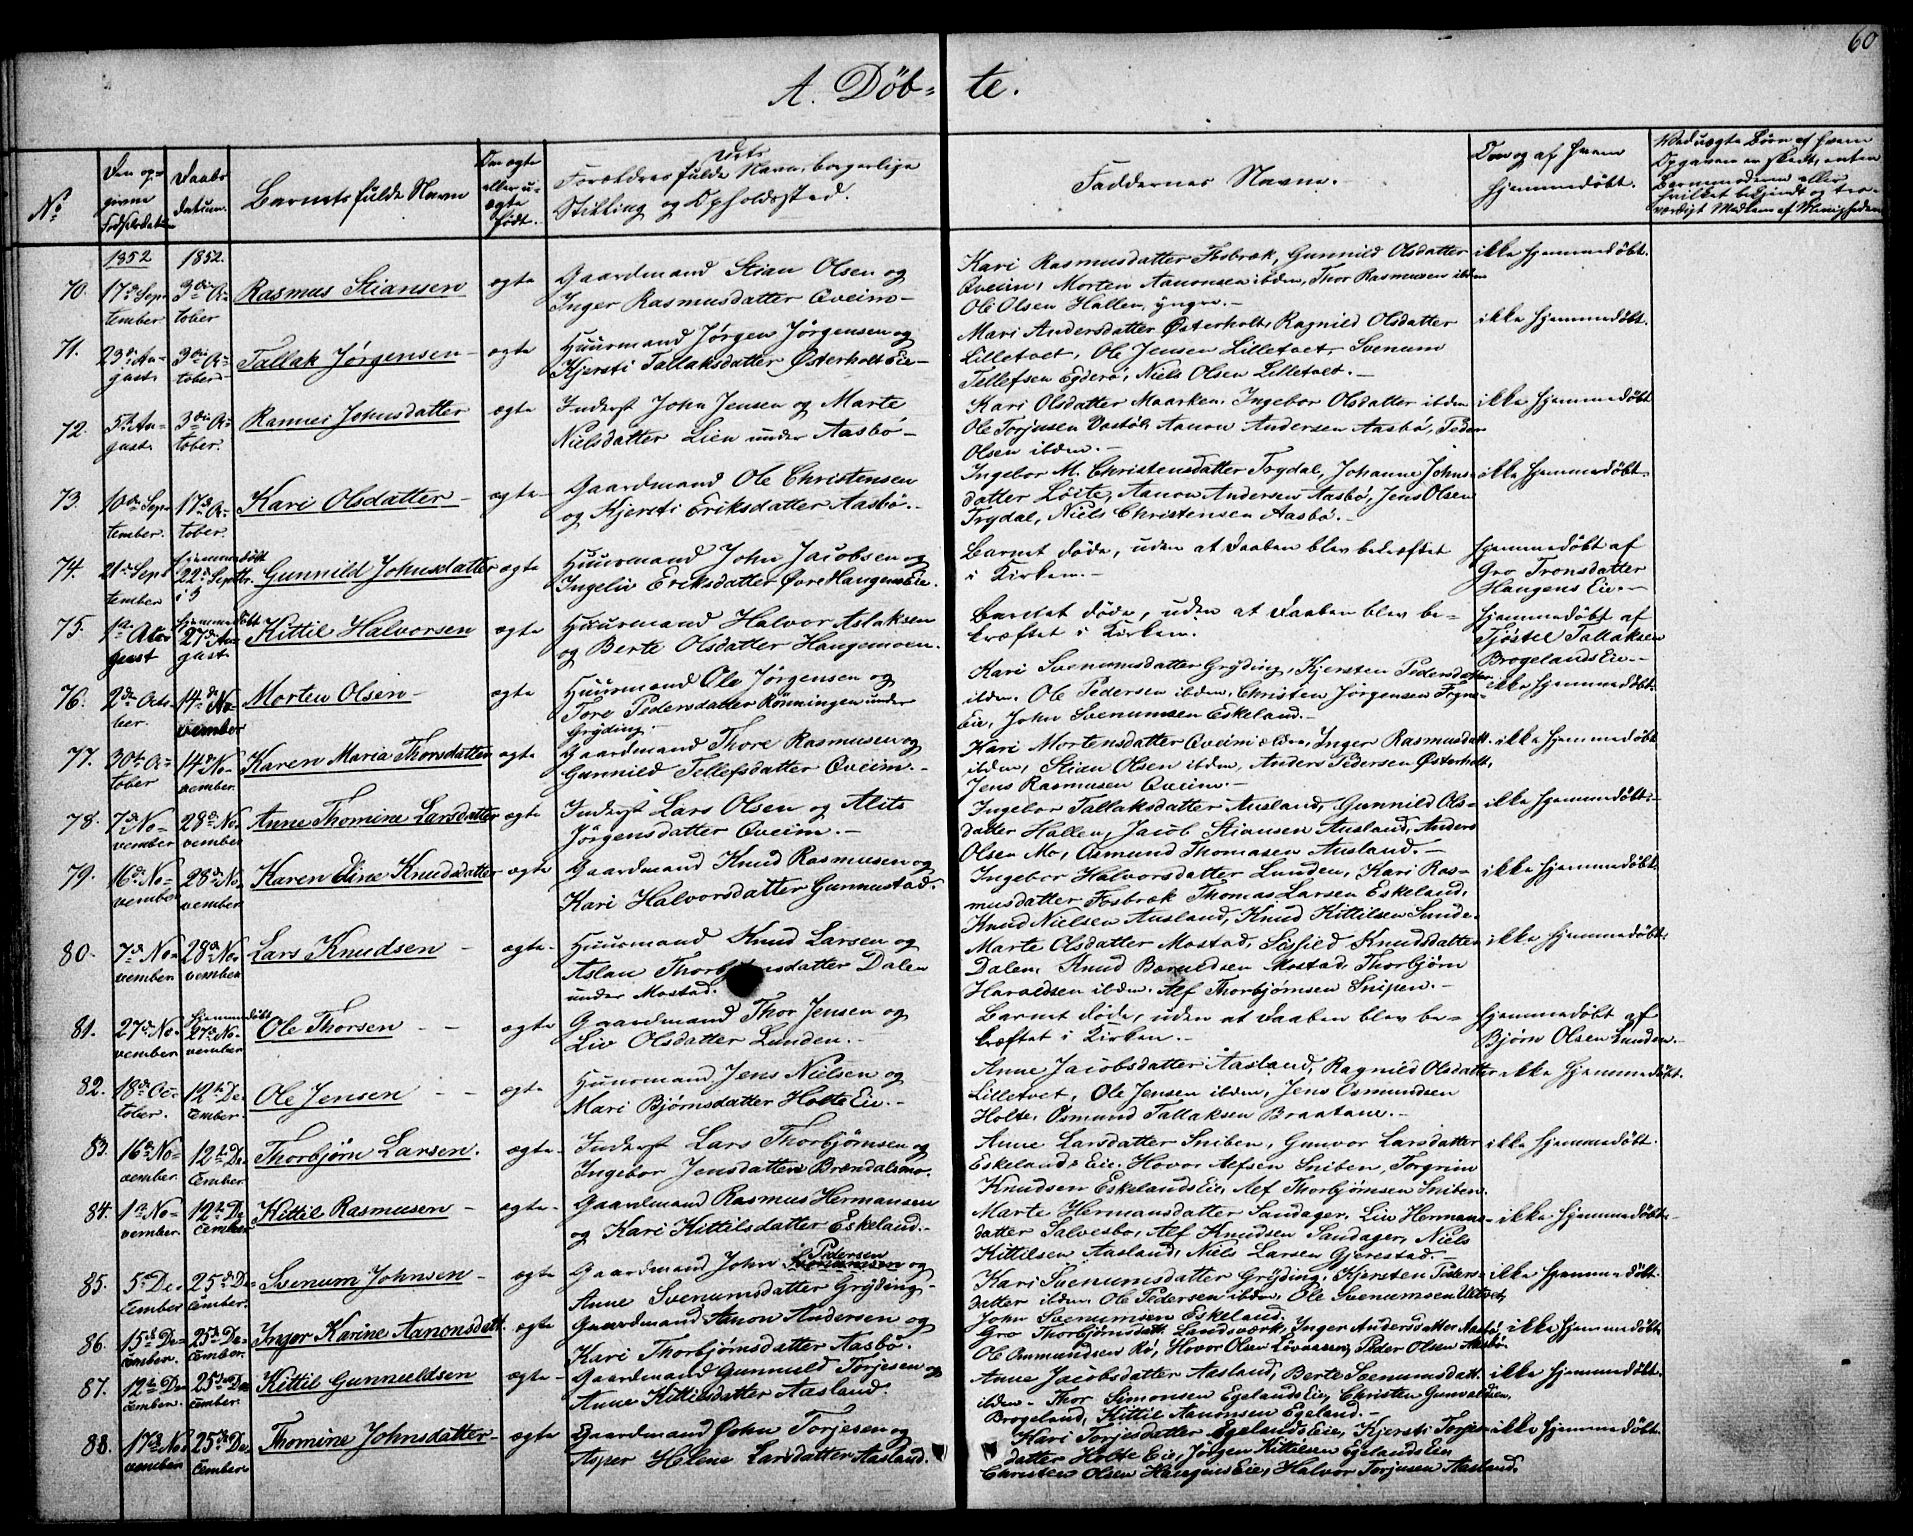 60
A. Döb- te.
No
Den op-
givne
Fødselsdatum
Daabs-
datum.
Barnets fulde Navn
Om ægte
eller u-
ægte
født.
Forældres fulde Navn, borgerlige
Stilling og Opholdssted.
Faddernes Navne.
Om og af hvem
hjemmedøbt.
1852 1852.
70. 17de Sep-
tember
3die Oc-
tober
Rasmus Stiansen
ægte
Gaardmand Stian Olsen og
Inger Rasmusdatter Qveim-
Kari Rasmusdatter Fosbræk, Gunnild Olsdatter
Qveim, Morten Aanonsen ibdm, Thor Rasmusen ibdm
Ole Olsen Hallen, yngre.-
ikke hjemmedøbt.
71. 23de Au-
gust.
3die Oc-
tober
Tallak Jørgensen
ægte
Huusmand Jørgen Jørgensen og
Kjersti Tallaksdatter Østerholt Eie-
Mari Andersdatter Østerholt, Ragnild Olsdatter
Lilletvet, Ole Jensen Lilletvet, Svenum
Tellefsen Egderø, Niels Olsen Lilletvet.-
ikke hjemmedøbt.
72. 5te Au-
gust.
3die Oc-
tober.
Rannei Johnsdatter
ægte
Inderst John Jensen og Marte
Nielsdatter Lien under Aasbø-
Kari Olsdatter Maarken, Ingebor Olsdatter ibdm
Ole Torjusen Vastøl, Aanon Andersen Aasbø, Peder
Olsen ibdm.-
ikke hjemmedøbt
73. 10de Sep-
tember.
17de Oc-
tober.
Kari Olsdatter-
ægte-
Gaardmand Ole Christensen
og Kjersti Eriksdatter Aasbø.-
Ingebor M. Christensdatter Trydal, Johanne Johns-
datter Løite, Aanon Andersen Aasbø, Jens Olsen
Trydal, Niels Christensen Aasbø.-
ikke hjemmedøbt-
74. 21de Sep-
tember
hjemmedøbt
22de Septbr.
Gunnild Johnsdatter
ægte
Huusmand John Jacobsen og
Ingeliv Eriksdatter Øvre Haugens Eie.
Barnet døde, uden at Daaben blev bekræftet
i Kirken.-
hjemmedøbt af
Gro Tronsdatter
Haugens Eie-
75. hjemmedøbt
27de Au-
gust
Kittil Halvorsen
ægte
Huusmand Halvor Aslaksen
og Berte Olsdatter Haugemoen.
Barnet døde, uden at Daaben blev be-
kræftet i Kirken.
hjemmedøbt af
Tjøstel Tallaksen
Brøgelands Eie.-
76. 2den Octo-
ber.
14de No-
vember
Morten Olsen-
ægte
Huusmand Ole Jørgensen og
Tore Pedersdatter Rønningen under
Grýding.
Kari Svenumsdatter Grýding, Kjersten Pedersdatter
ibdm, Ole Pedersen ibdm, Christen Jørgensen Frÿnes
Eie, John Svenumsen Eskeland.-
ikke hjemmedøbt-
77. 30te Oc-
tober
14de No-
vember.
Karen Maria Thorsdatter
ægte
Gaardmand Thore Rasmusen og
Gunnild Tellefsdatter Qveim.-
Kari Mortensdatter Qveim ældre, Inger Rasmusdatt.
ibdm, Stian Olsen ibdm, Anders Pedersen Østerholt,
Jens Rasmusen Qveim.-
ikke hjemmedøbt
78. 7de No-
vember
28de No-
vember
Anne Thomine Larsdatter
ægte
Inderst Lars Olsen og Alits
Jørgensdatter Qveim.-
Ingebor Tallaksdatter Ausland, Gunnild Ols-
datter Hallen, Jacob Stiansen Ausland, Anders
Olsen Mo, Osmund Thomasen Ausland.-
ikke hjemmedøbt.-
79. 16de No-
vember.
28de No-
vember
Karen Eline Knudsdatter
ægte
Gaardmand Knud Rasmusen og
Kari Halvorsdatter Gunnustad.
Ingebor Halvorsdatter Lunden, Kari Ras-
musdatter Fosbræk, Thomas Larsen Eskeland,
Knud Nielsen Ausland, Knud Kittilsen Sunde-
ikke hjemmedøbt
80. 7de No-
vember
28de No-
vember
Lars Knudsen
ægte-
Huusmand Knud Larsen og
Aslau Thorbjørnsdatter Dalen
under Mostad.
Marte Olsdatter Mostad, Sigfild Knudsdatter
Dalen, Knud Bæruldsen Mostad, Thorbjørn
Haraldsen ibdm, Alf Thorbjørnsen Snipen.-
ikke hjemmedøbt.
81. 27de No-
vember
hjemmedøbt
27de No-
vember
Ole Thorsen
ægte
Gaardmand Thor Jensen og
Liv Olsdatter Lunden.-
Barnet døde, uden at Daaben blev be-
kræftet i Kirken.-
hjemmedøbt af
Bjørn Olsen Lunden.-
82. 18de Oc-
tober.
12te De-
cember.
Ole Jensen
ægte
Huusmand Jens Nielsen og
Mari Bjørnsdatter Holte Eie.-
Anne Jacobsdatter Aasland, Ragnild Olsdatter
Lilletvet, Ole Jensen ibdm, Jens Osmundsen
Holte, Osmund Tallaksen Braatane.-
ikke hjemmedøbt.
83. 16de No-
vember.
12te De-
cember.
Thorbjørn Larsen.
ægte.
Inderst Lars Thorbjørnsen og
Ingebor Jensdatter Brændalsmo.
Anne Larsdatter Sniben, Gunvor Larsdatter
Eskelands Eie, Hovor Alfsen Sniben, Torgrim
Knudsen Eskelands Eie, Alf Thorbjørnsen Sniben.
ikke hjemmedøbt.
84. 1ste No-
vember.
12te De-
cember
Kittil Rasmusen
ægte-
Gaardmand Rasmus Hermansen
og Kari Kittilsdatter Eskeland.-
Marte Hermansdatter Sandager, Liv Hermans-
datter Salvesbo, Alf Knudsen Sandager, Niels
Kittilsen Aasland, Niels Larsen Gjerestad.-
ikke hjemmedøbt.
85. 5te De-
cember
25de De-
cember.
Svenum Johnsen
ægte
Gaardmand John Pedersen og
Anne Svenumsdatter Grýding-
Kari Svenumsdatter Grýding, Kjersten Peders-
datter ibdm, Ole Pedersen ibdm, Ole Svenumsen Ulltvet,
John Svenumsen Eskeland.
ikke hjemmedøbt.
86. 15de De-
cember.
25de De-
cember.
Inger Karine Aanonsdatt.
ægte
Gaardmand Aanon Andersen og
Kari Thorbjørnsdatter Aasbø.
Gro Thorbjørnsdatt. Landsværk, Inger Andersdatter Aasbø,
Ole Ommundsen Rø, Hovor Olsen Løvaasen, Peder Olsen Aasbø.
ikke hjemmedøbt
87. 12te De-
cember.
25de De-
cember.
Kittil Gunnuldsen
ægte-
Gaardmand Gunnuld Torjesen og
Anne Kittilsdatter Aasland.
Anne Jacobsdatter Aasland, Berte Svenumsdatt.
ibdm- Thor Simonsen Egelands Eie, Christen Gunvaldsen
Brøgeland, Kittil Aanonsen Egeland.-
ikke hjemmedøbt.
88. 17de No-
vember
25de De-
cember
Thomine Johnsdatter-
ægte
Gaardmand John Torjesen og
Asper Helene Larsdatter Aasland.
Kari Torjesdatter Egelands Eie, Kjersti Torjes-
datter Holte Eie, Jørgen Kittilsen Egelands Eie
Christen Olsen Haugens Eie, Halvor Torjusen Aasland.
ikke hjemmedøbt.